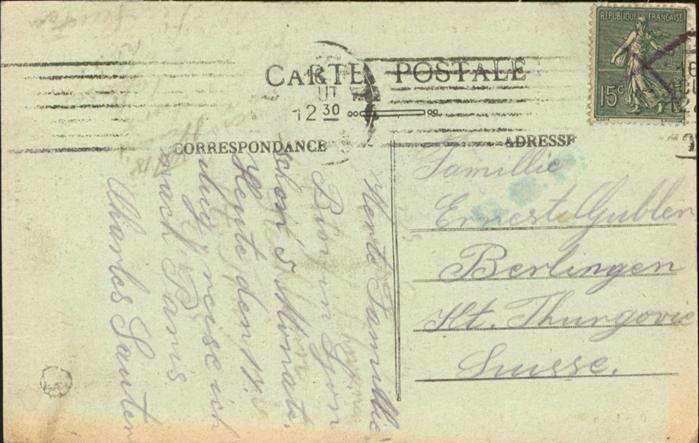 CARTE POSTALE
REPUBLIQUE FRANÇAISE
15c
12 30
CORRESPONDANCE
ADRESSE
Werte Familli
Bin in Lyon
schon 5 Monate.
Heute den 17.
reise ich
nach Paris
Charles Sauter
Famillie
Ernest Gubler
Berlingen
Kt. Thurgovie
Suisse.